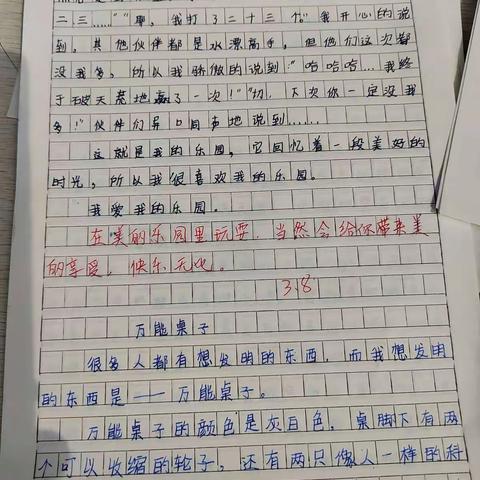 二三……”“耶，我打了二十三个。”我开心的说
到，其他伙伴都是水漂高手，但他们这次都
没我多，所以我骄傲的说到：“哈哈哈…我终
于破天荒地赢了一次！”“切，下次你一定没我
多！”伙伴们异口同声地说到……
这就是我的乐园，它回忆着一段美好的
时光，所以我很喜欢我的乐园。
我爱我的乐园。
在美的乐园里玩耍，当然会给你带来美
的享受，快乐无比。
3.8
万能桌子
很多人都有想发明的东西，而我想发明
的东西是——万能桌子。
万能桌子的颜色是灰白色，桌脚下有两
个可以收缩的轮子，还有两只像人一样的